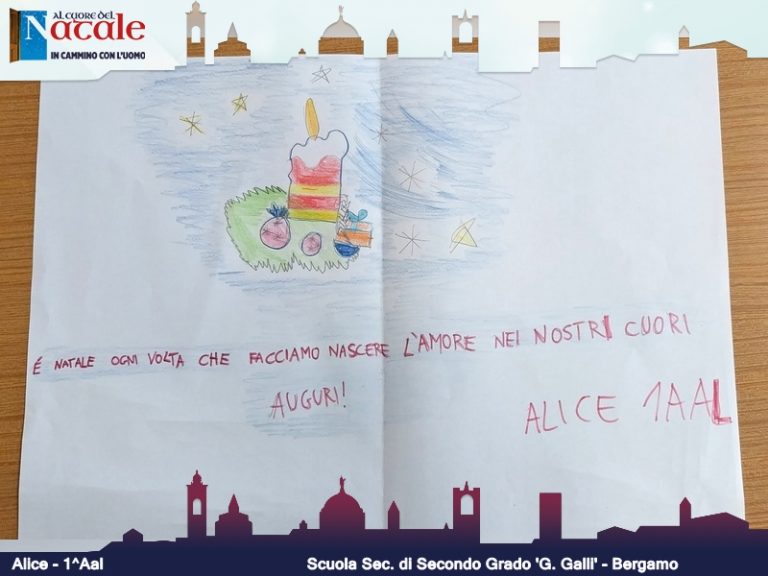 AL CUORE DEL
NATALE
IN CAMMINO CON L'UOMO
É NATALE OGNI VOLTA CHE FACCIAMO NASCERE L'AMORE NEI NOSTRI CUORI
AUGURI!
ALICE 1AAL
Alice - 1^Aal
Scuola Sec. di Secondo Grado 'G. Galli' - Bergamo